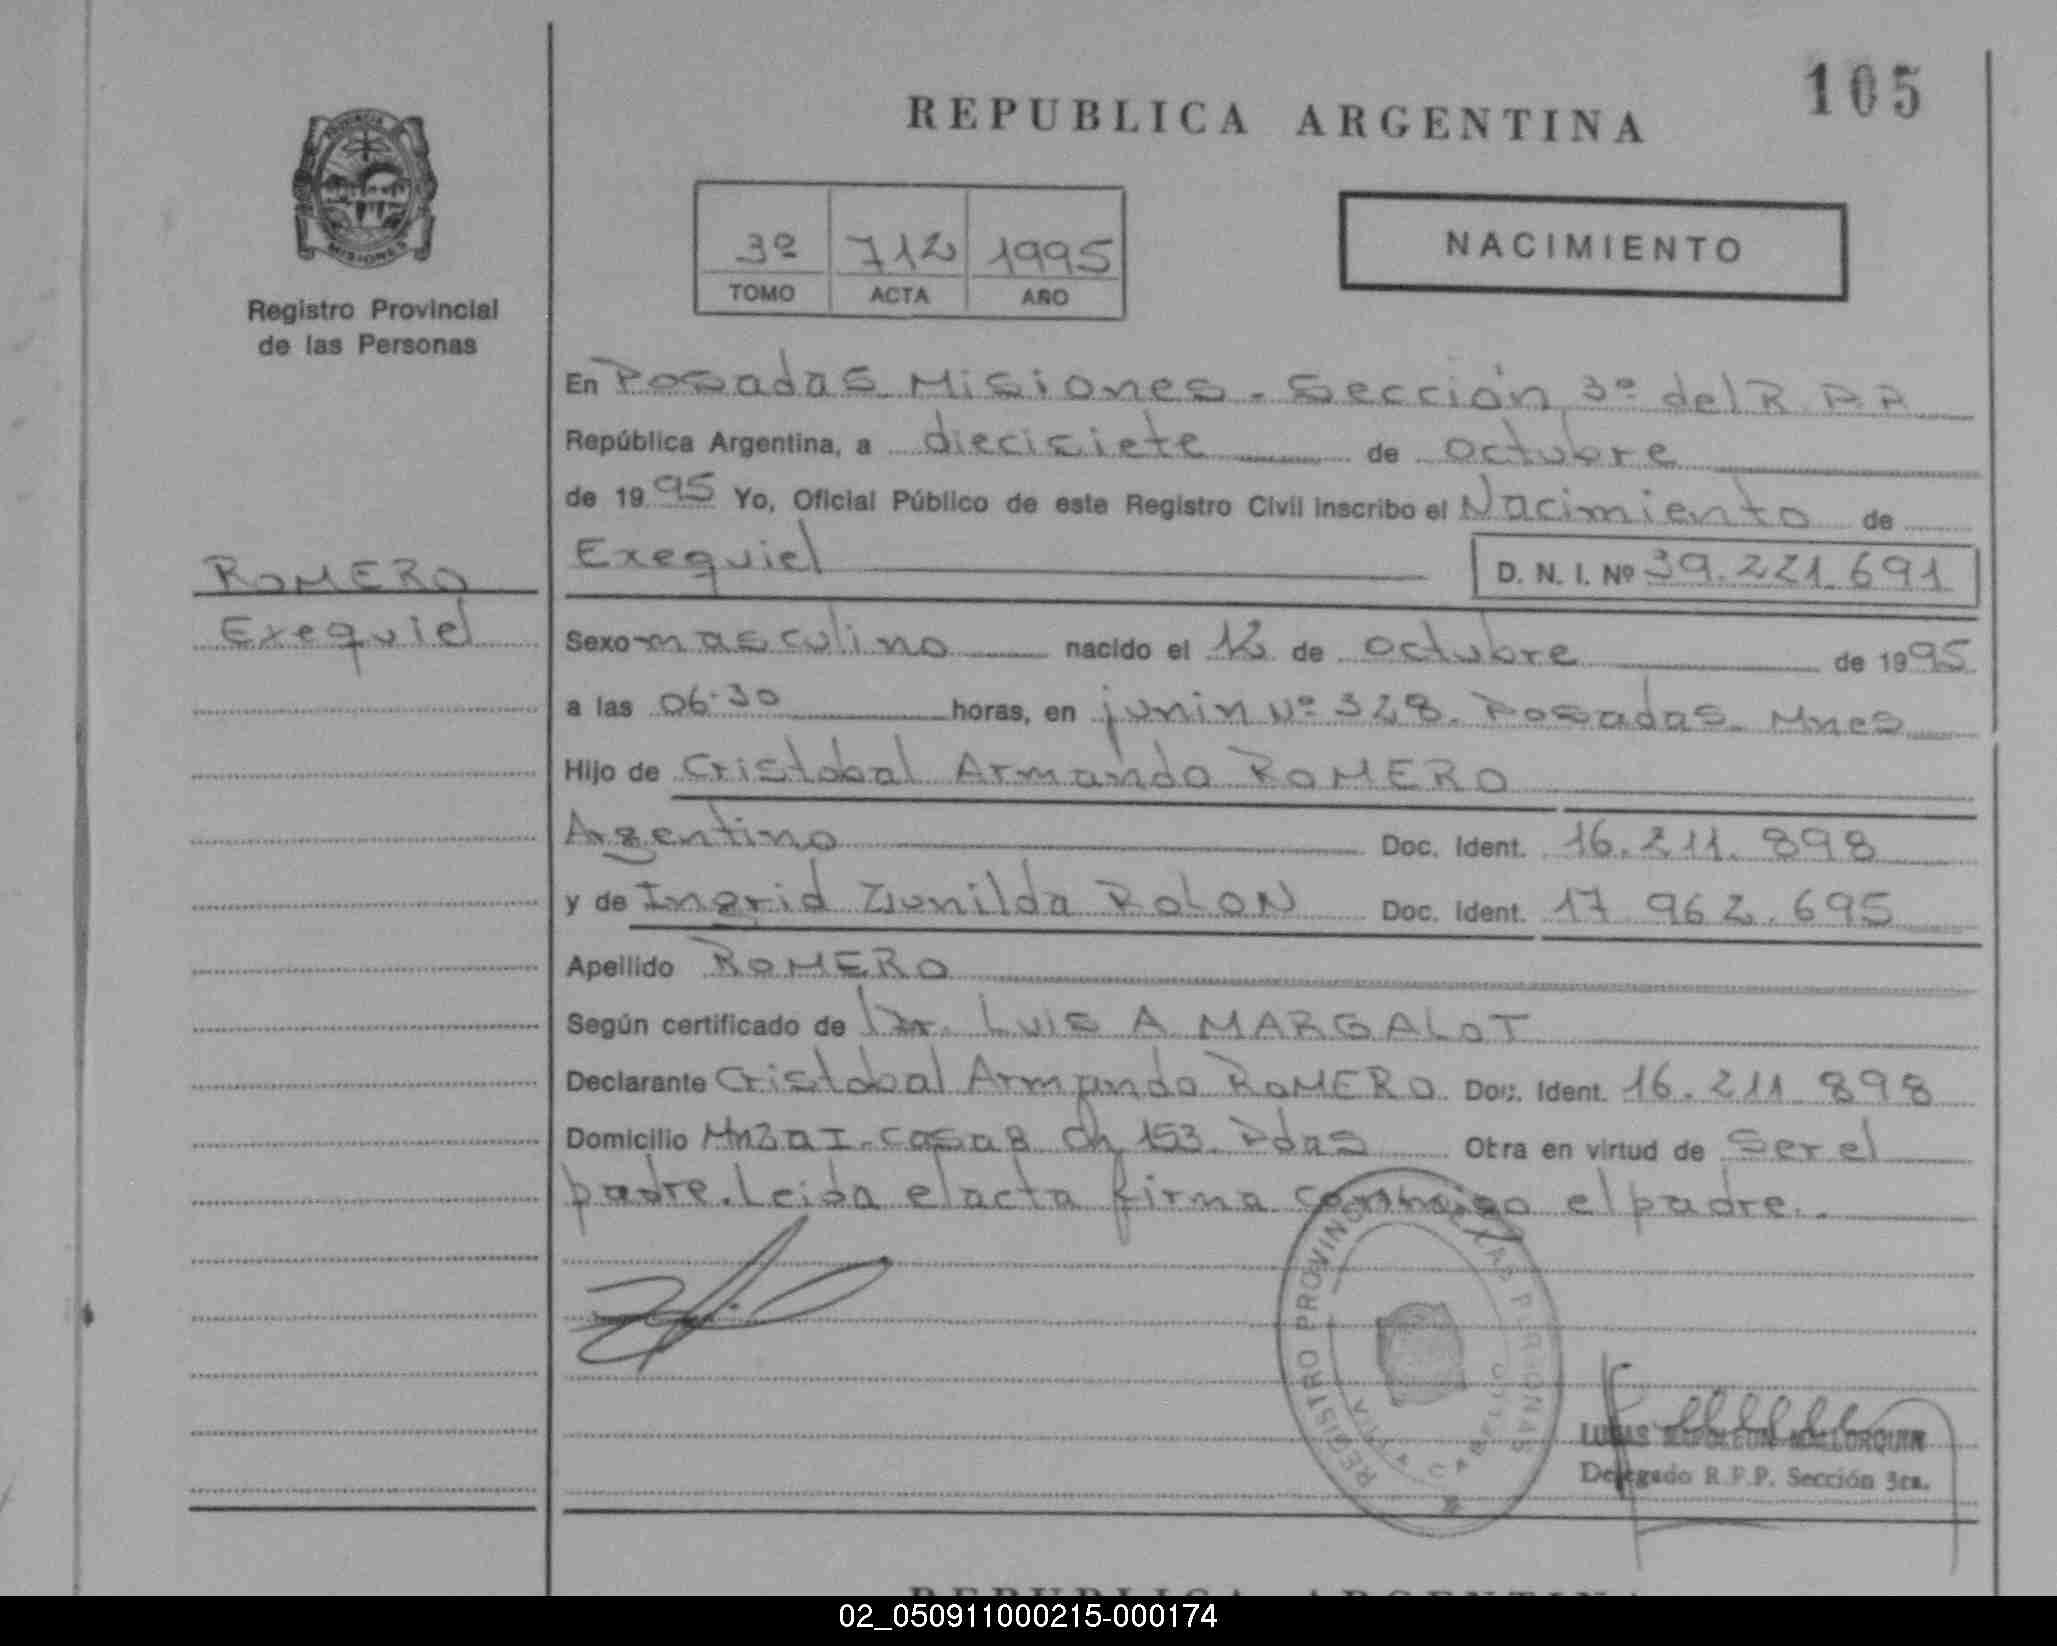 105
REPUBLICA ARGENTINA
PROVINCIA
MISIONES
Registro Provincial
de las Personas
3º 712 1995
TOMO ACTA AÑO
NACIMIENTO
En Posadas Misiones - Sección 3º del R.P.P
República Argentina, a diecisiete de octubre
de 1995 Yo, Oficial Público de este Registro Civil inscribo el Nacimiento de
ROMERO
Exequiel D. N. I. Nº 39.221.691
Exequiel
Sexo masculino nacido el 12 de octubre de 1995
a las 06:30 horas, en junin Nº 328. Posadas. Mnes
Hijo de Cristobal Armando ROMERO
Argentino Doc. Ident. 16.211.898
y de Ingrid Zunilda ROLON Doc. Ident. 17 962.695
Apellido ROMERO
Según certificado de Dr. LUIS A MARGALOT
Declarante Cristobal Armando ROMERO Doc. Ident. 16.211 898
Domicilio MnzaI-casa8 Ch 153. Pdas Otra en virtud de Ser el
padre. Leida el acta firma conmigo el padre.
REGISTRO PROVINCIAL DE LAS PERSONAS
VILLA CABELLO
LUCAS NAPOLEON MALLORQUIN
Delegado R.P.P. Sección 3ra.
REPUBLICA ARGENTINA
02_050911000215-000174